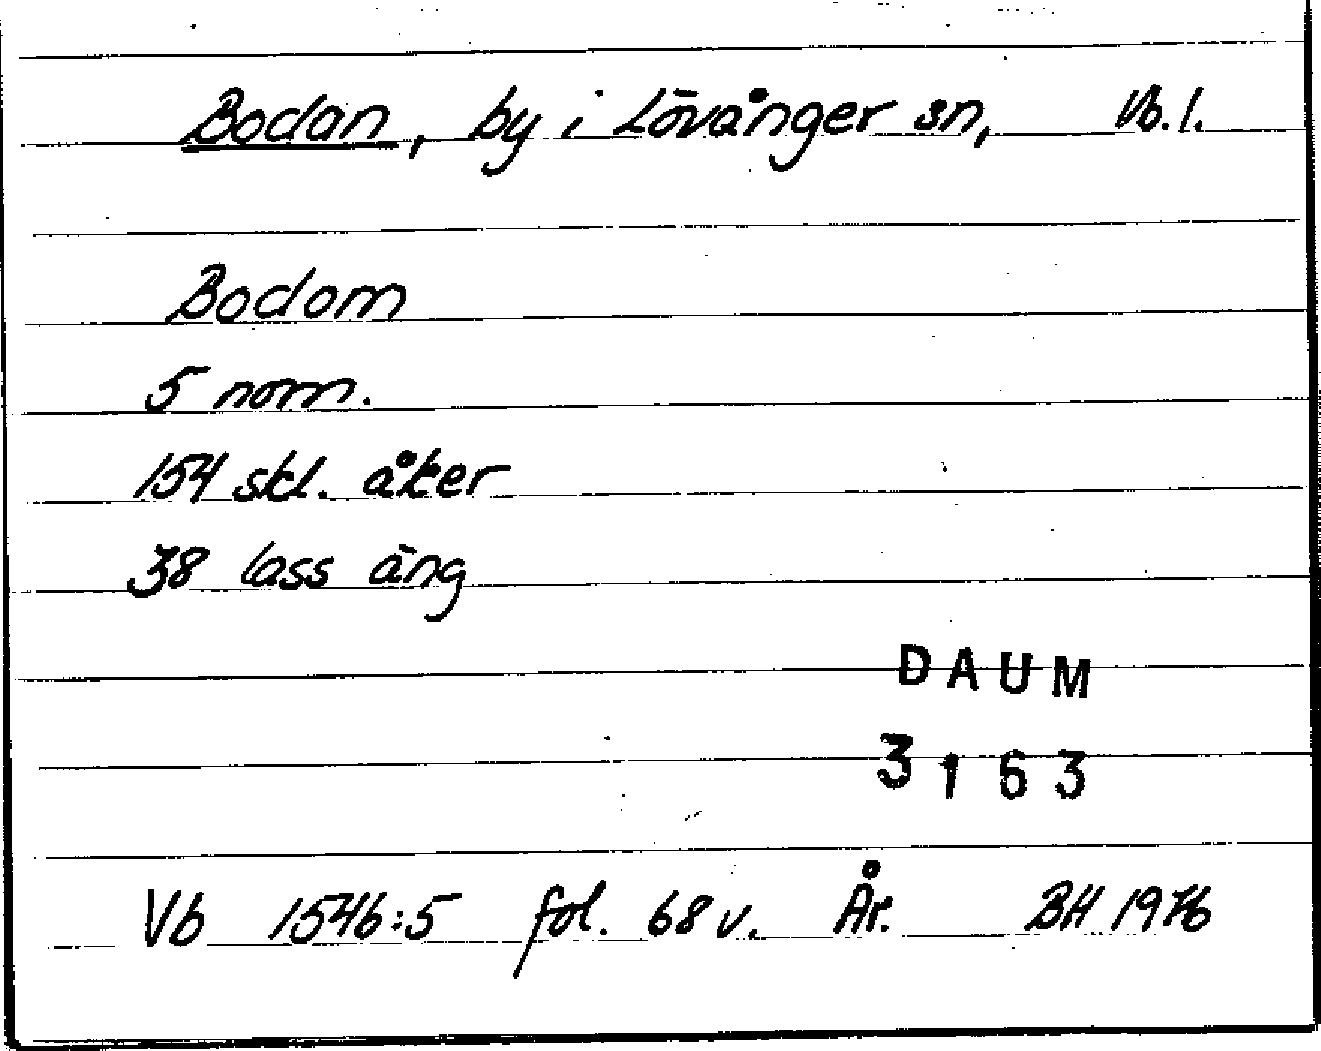 Bodan, by i Lövånger sn, Vb. l.
Bodom
5 nom.
154 skl. åker
38 lass äng
DAUM
3163
Vb 1546:5 fol. 68 v. År. BH 1976